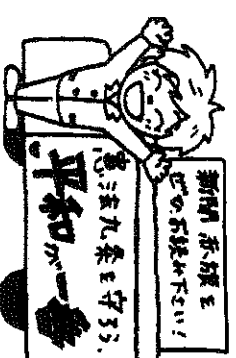 新聞 赤旗を
ぜひお読み下さい!
憲法九条を守ろう、
平和が一番